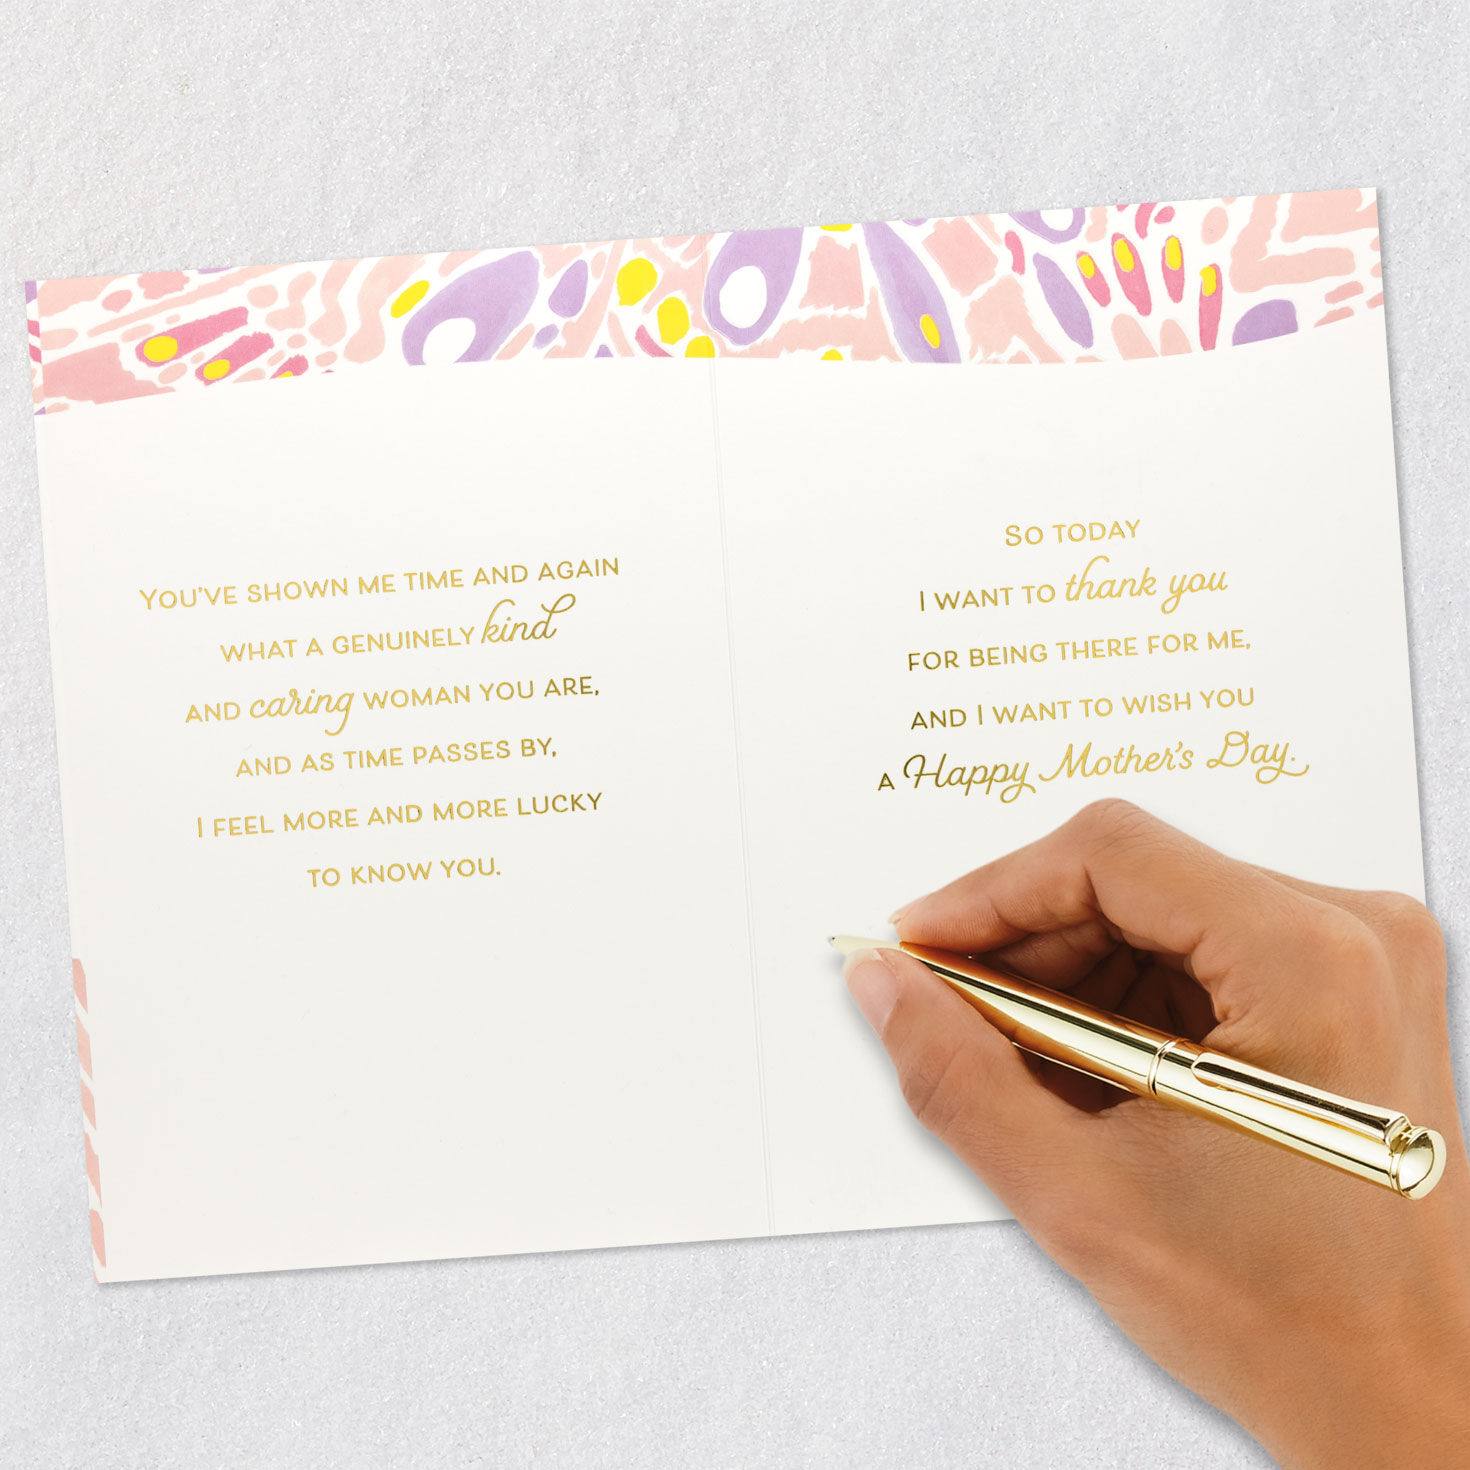 You've shown me time and again
what a genuinely kind
and caring woman you are,
and as time passes by,
I feel more and more lucky
to know you.
So today
I want to thank you
for being there for me,
and I want to wish you
a Happy Mother's Day.